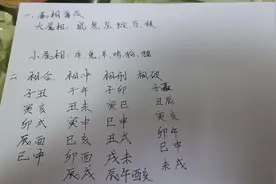 一、属相
大属相: 鼠 虎 龙 蛇 马 猴
小属相: 牛、兔、羊、鸡、狗、猪
二 相合 相冲 相刑 相破
子丑 子午 子卯 子
寅亥 丑未 寅巳 丑辰
卯戌 寅申 巳申 寅亥
辰酉 巳亥 丑戌 卯午
巳申 卯酉 戌未 巳申
辰戌 辰午酉亥 未戌